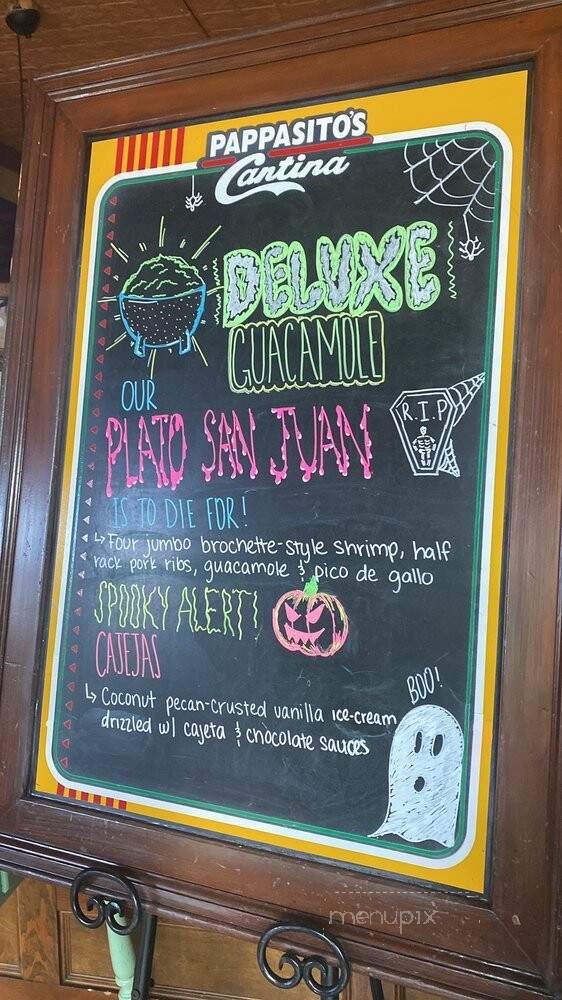 PAPPASITO'S
Cantina
DELUXE
GUACAMOLE
OUR
PLATO SAN JUAN
R.I.P
IS TO DIE FOR!
↳ Four jumbo brochette-style shrimp, half
rack pork ribs, guacamole & pico de gallo
SPOOKY ALERT!
CAJEJAS
↳ Coconut pecan-crusted vanilla ice-cream
drizzled w/ cajeta & chocolate sauces
BOO!
menupix